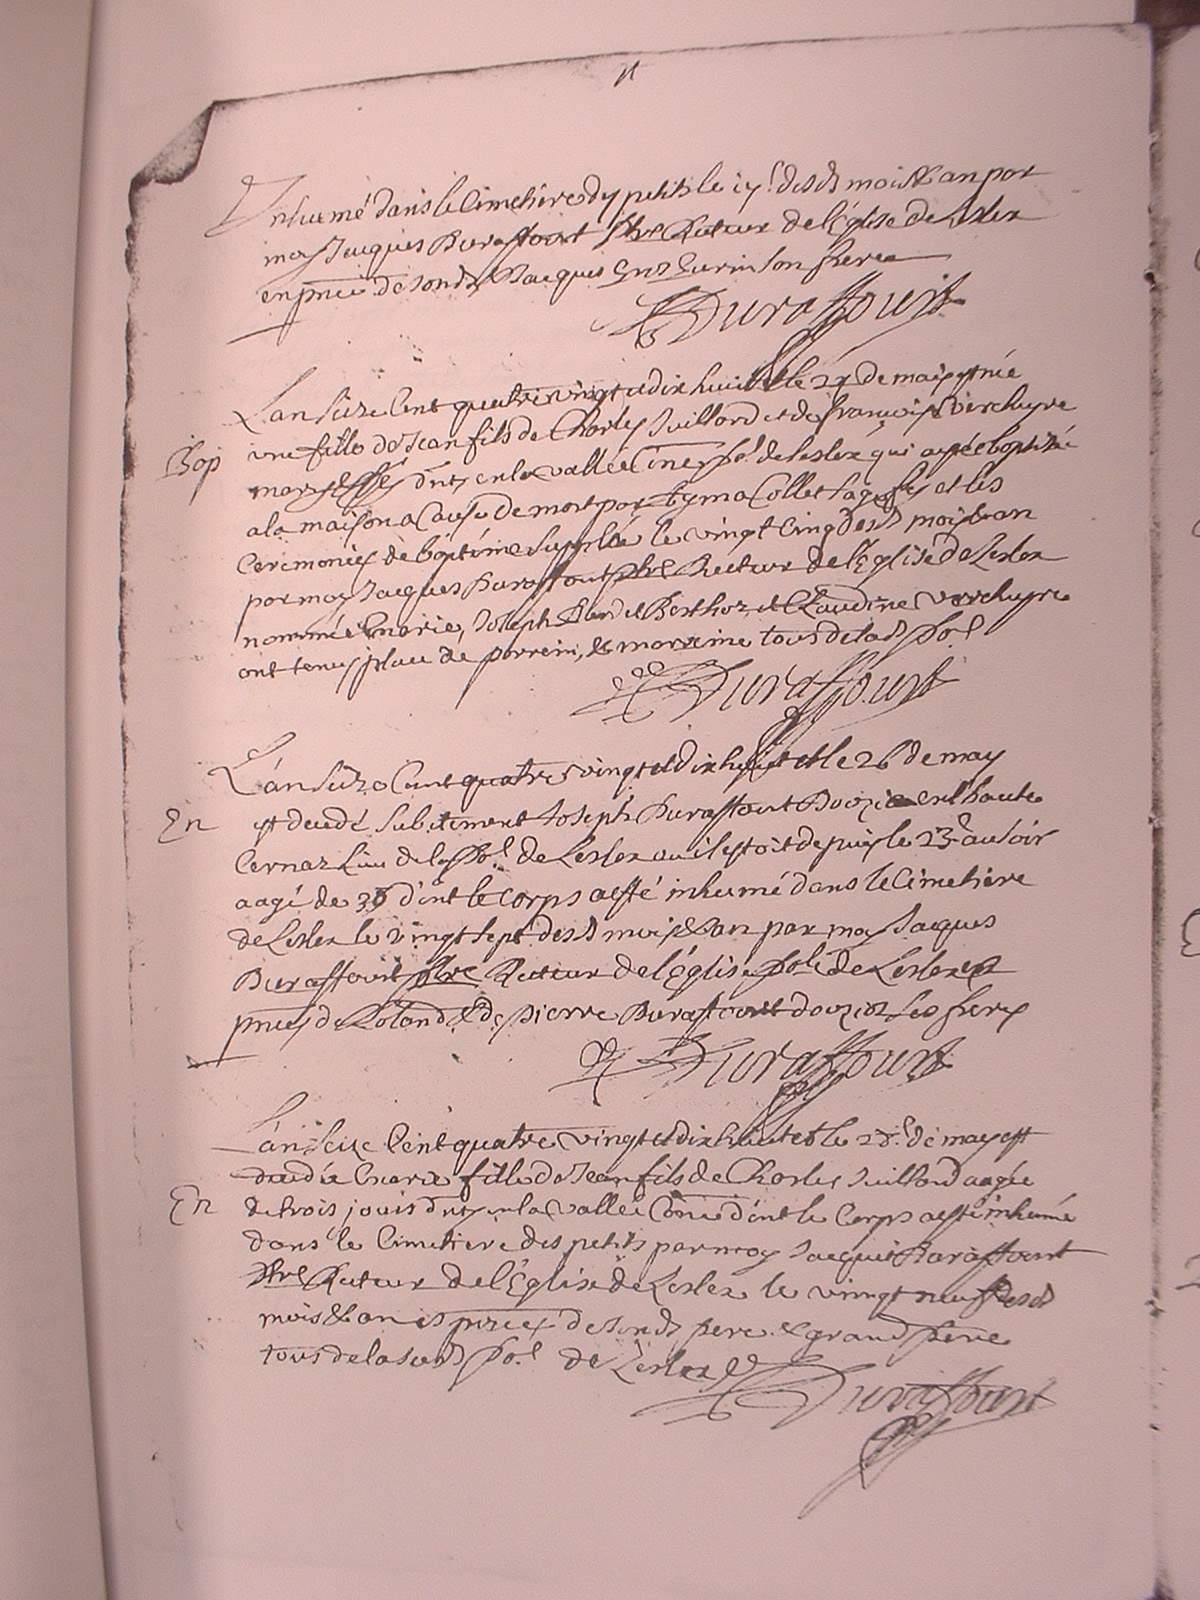 Inhumé dans le Cimetiere des petits le 17.e desd. mois & an par
moy Jacques Duraffourt Ptre Recteur de l'Eglise de Leslex
en pnce de sond. Jacques son frere
Duraffourt
L'an Seize Cent quatre vingt et dix huit et le 24 de may est née
Bap
une fille de Jean fils de Charles Juillard et de françoise Verchayre
mariés en la vallée Cine po.l de Leslex qui a esté baptisé
a la maison a Cause de mort par Colet sage fe et les
Ceremonies de baptême Supplée le vingt Cinq desd. mois & an
par moy Jacques Duraffourt Ptre Recteur de l'Eglise de Leslex
nommée Marie, Joseph Berthoz et Claudine Verchayre
ont tenus place de parrein, & marreine tous de lad. po.l
Duraffourt
L'an Seize Cent quatre vingt et dix huict et le 26 de may
En
est decedé Subitement Joseph Duraffourt Douzie en l'haute
Cernaz Lieu de la po.l de Leslex ou il estoit depuis le 23.e au soir
aagé de 35 dont le Corps a esté inhumé dans le Cimetiere
de Leslex le vingt Sept desd. mois & an par moy Jacques
Duraffourt Ptre Recteur de l'Eglise po.le de Leslex
pnces de Roland & de Pierre Duraffourt douzioz Ses freres
Duraffourt
L'an Seize Cent quatre vingt et dix huit et le 28.e de may est
decedée Marie fille de Jean fils de Charles Juillard aagée
En
de trois jours en la vallée Cine dont le Corps a esté inhumé
dans le Cimetiere des petits par moy Jacques Duraffourt
Ptre Recteur de l'Eglise de Leslex le vingt neuf desd.
mois & an es pnces de sond. pere & grand pere
tous de la Susd. po.l de Leslex
Duraffourt